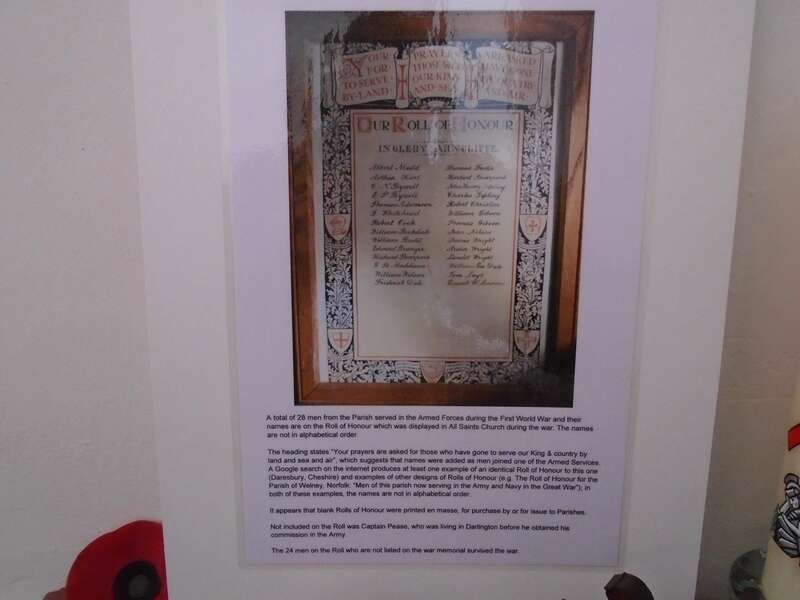 YOUR PRAYERS ARE ASKED
FOR THOSE WHO HAVE GONE
TO SERVE OUR KING & COUNTRY
BY LAND AND SEA AND AIR
OUR ROLL OF HONOUR
Robert Cook
Herbert
Charles
Robert Christian
William Gibson
Francis Gibson
John Nelson
James Wright
Wright
Wright
William Nelson
Frederick Dale
A total of 28 men from the Parish served in the Armed Forces during the First World War and their
names are on the Roll of Honour which was displayed in All Saints Church during the war. The names
are not in alphabetical order
The heading states "Your prayers are asked for those who have gone to serve our King & country by
land and sea and air", which suggests that names were added as men joined one of the Armed Services.
A Google search on the internet produces at least one example of an identical Roll of Honour to this one
(Daresbury, Cheshire) and examples of other designs of Rolls of Honour (e.g. The Roll of Honour for the
Parish of Welney, Norfolk: "Men of this parish now serving in the Army and Navy in the Great War"); in
both of these examples, the names are not in alphabetical order.
It appears that blank Rolls of Honour were printed en masse, for purchase by or for issue to Parishes.
Not included on the Roll was Captain Pease, who was living in Darlington before he obtained his
commission in the Army.
The 24 men on the Roll who are not listed on the war memorial survived the war